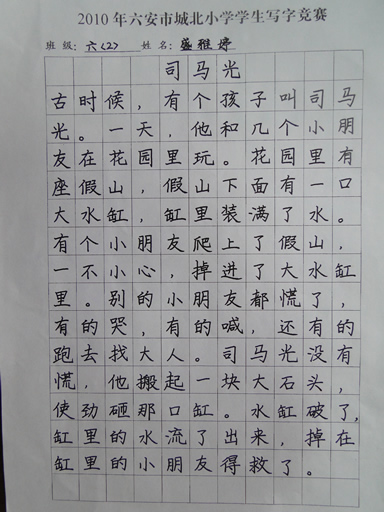 2010年六安市城北小学学生写字竞赛
班级：六(2) 姓名：盛雅婷
司马光
古时候，有个孩子叫司马
光。一天，他和几个小朋
友在花园里玩。花园里有
座假山，假山下面有一口
大水缸，缸里装满了水。
有个小朋友爬上了假山，
一不小心，掉进了大水缸
里。别的小朋友都慌了，
有的哭，有的喊，还有的
跑去找大人。司马光没有
慌，他搬起一块大石头，
使劲砸那口缸。水缸破了，
缸里的水流了出来，掉在
缸里的小朋友得救了。